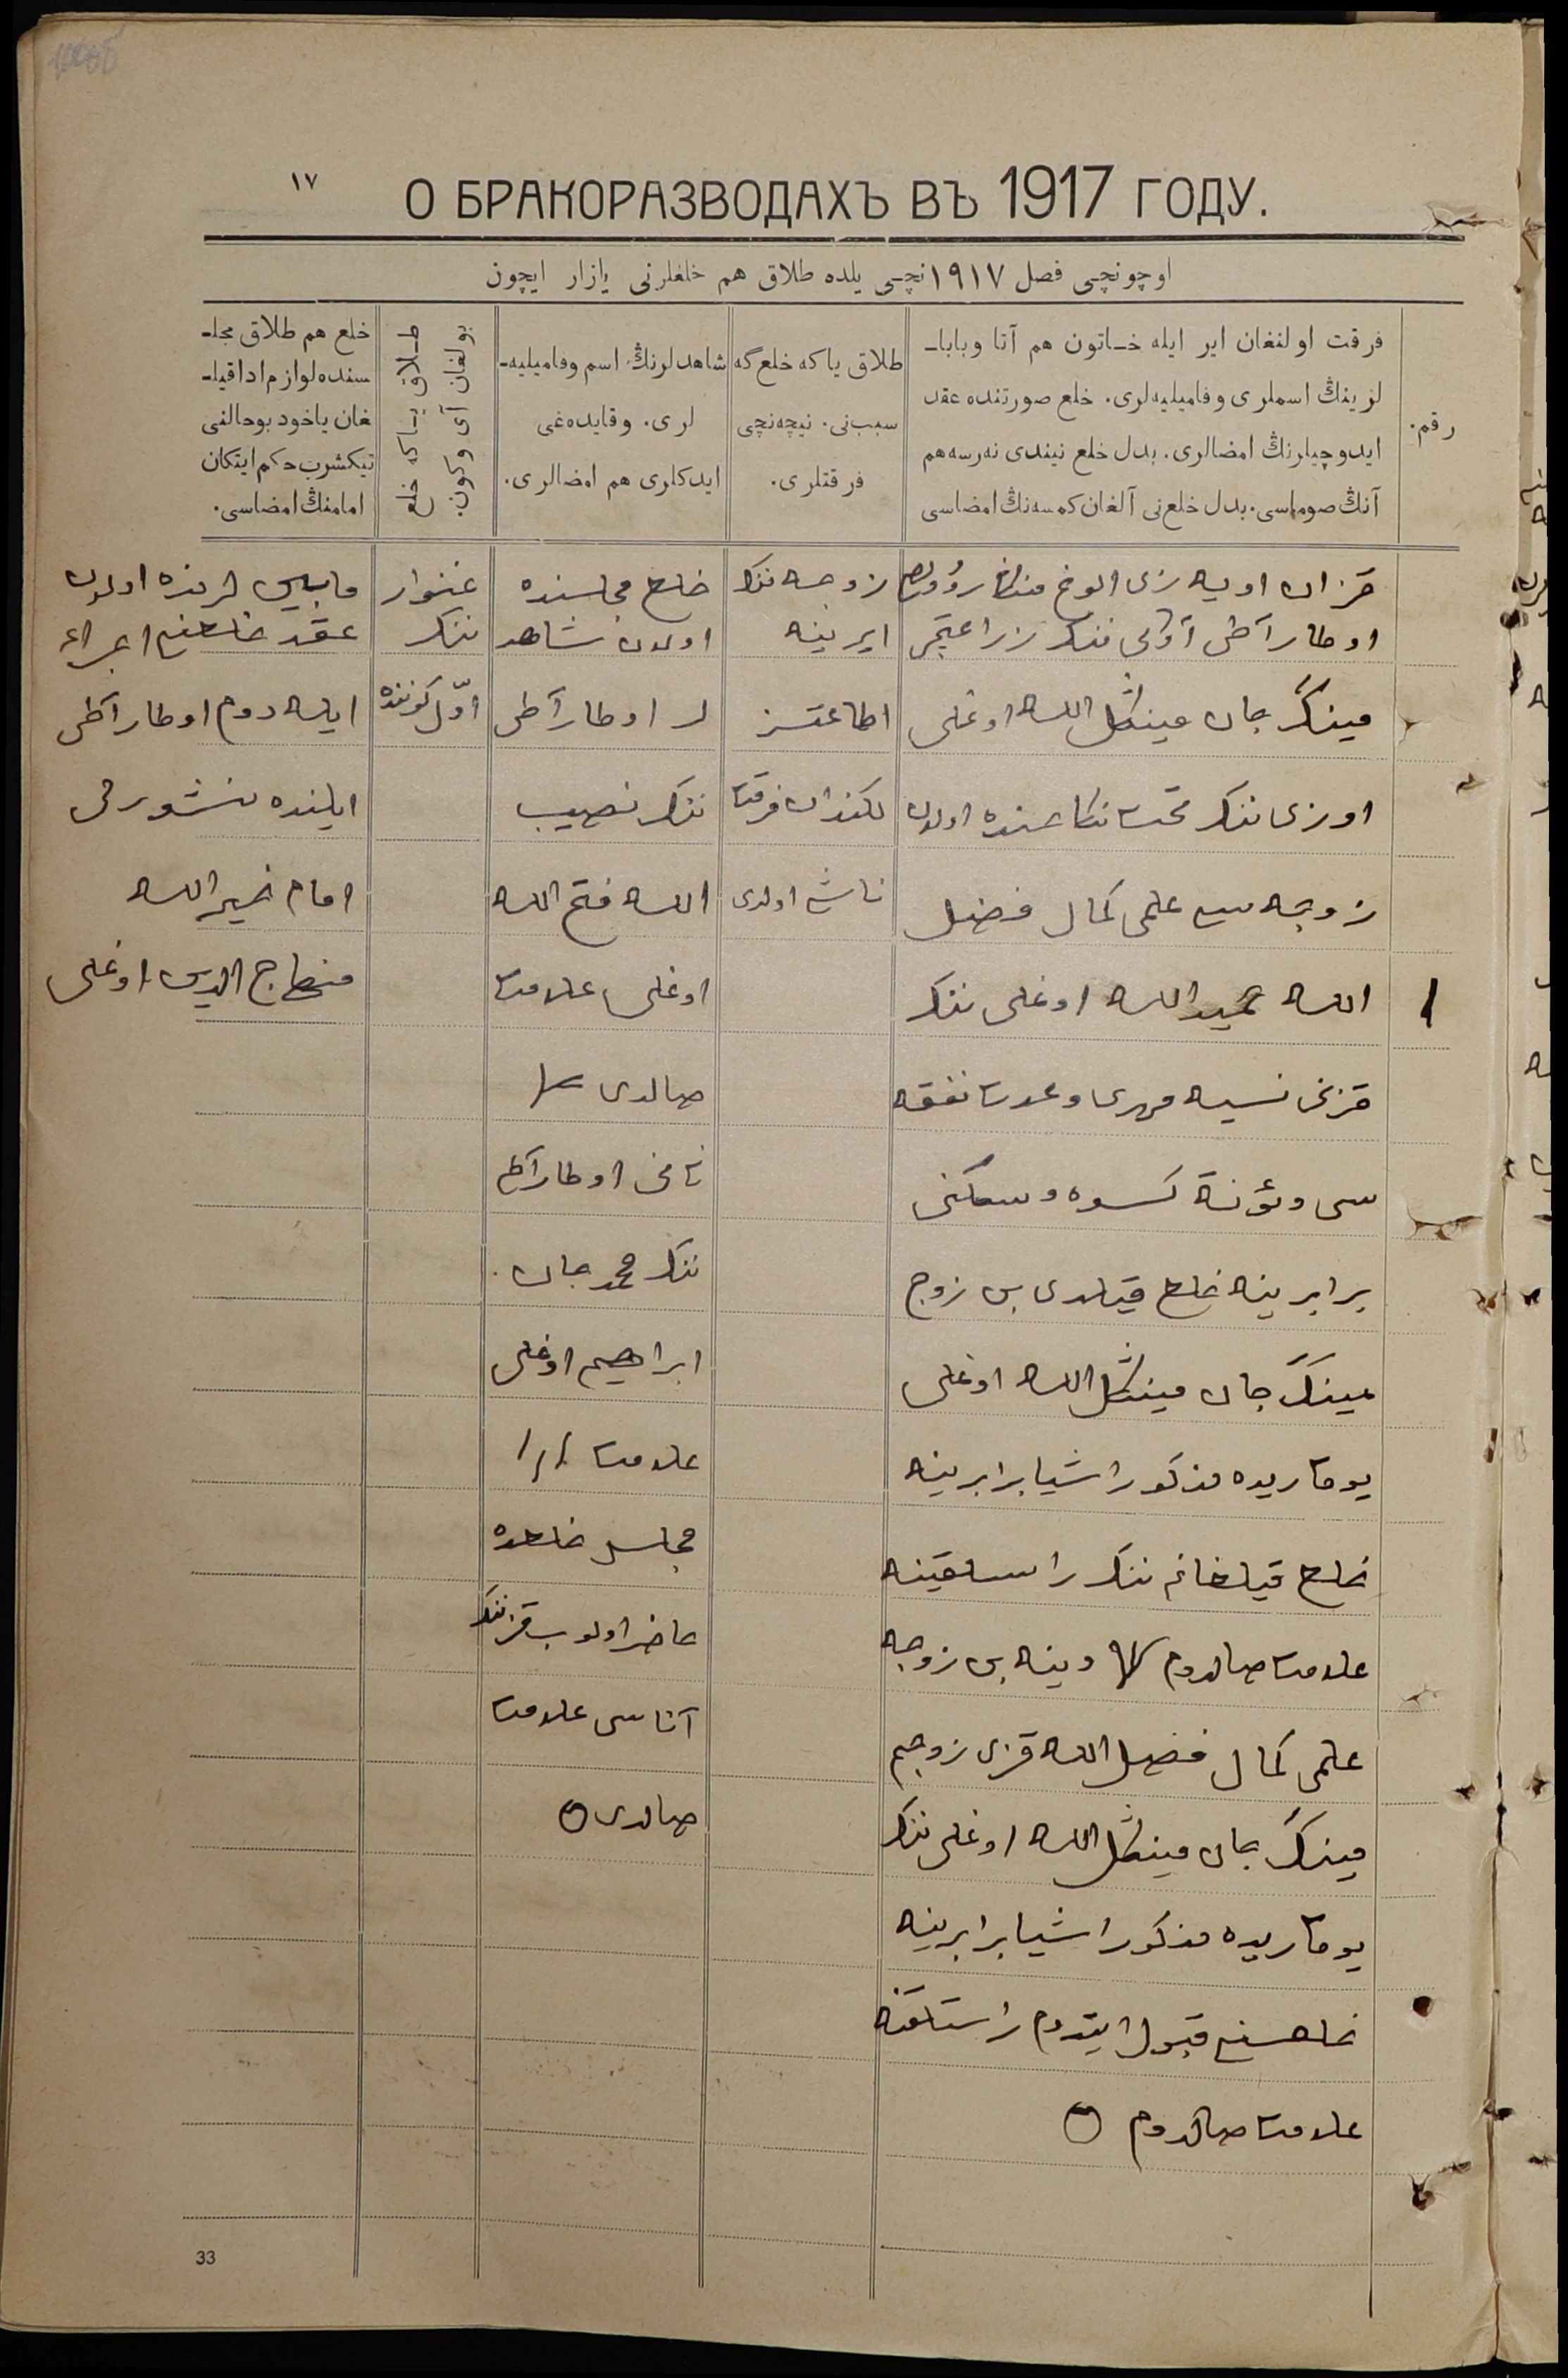 ١٧
О БРАКОРАЗВОДАХЪ ВЪ 1917 ГОДУ.
اوچونچی فصل ١٩١٧ نچی یلده طلاق هم خلعلرنی یازار ایچون
رقم.
فرقت اولنغان ایر ایله خاتون هم آتا وبابا-
لرینڭ اسملری وفامیلیه‌لری. خلع صورتنده عقد
ایدوچیلرنڭ امضالری. بدل خلع نیندی نه‌رسه هم
آنڭ صوماسی. بدل خلع‌نی آلغان کمسه‌نڭ امضاسی
طلاق یا که خلع گه
سبب‌نی. نیچه‌نچی
فرقتلری.
شاهدلرنڭ اسم وفامیلیه-
لری. وقایده‌غی
ایدکلری هم امضالری.
طلاق یاکه خلع
بولغان آی وکون.
خلع هم طلاق مجلـ
سنده لوازم ادا قیلـ
غان یاخود بو حالنی
تیکشرب حکم ایتکان
امامنڭ امضاسی.
١
قزان اویه‌زی الوغ
اوطار آطی آولی ننک
مینک جان مینکل الله اوغلی
اوزی ننک تحت نکاحنده اولان
زوجه سی علمی کمال فضل
الله حمید الله اوغلی ننک
قزنی نسیه مهری وعدت نفقه
سی ومؤنة کسوه وسکنی
برابرینه خلع قیلدی بن زوج
مینک جان مینکل الله اوغلی
یوقاریده مذکور اشیا برابرینه
خلع قیلغانم ننک راستلقینه
علامت صالدوم وینه بن زوجه
علمی کمال فضل الله قزی زوجم
مینک جان مینکل الله اوغلی ننک
یوقاریده مذکور اشیا برابرینه
خلعسنی قبول ایتدوم راستلقنه
علامت صالدوم
زوجه ننک
ایرینه
اطاعتسز
لکندان فرقت
ناشی اولدی
خلع مجلسنده
اولان شاهد
لر اوطار آطی
ننک نصیب
الله فتح الله
اوغلی علامت
صالدی
ثانی اوطار آطی
ننک محمد جان
ابراهیم اوغلی
علامت
مجلس خلعده
حاضر اولوب قزننک
آتاسی علامت
صالدی
غنوار
ننک
اوّل کوننده
مابین لرنده اولان
عقد خلعنی اجراء
ایله دوم اوطار آطی
امام خیر الله
منهاج الدین اوغلی
33